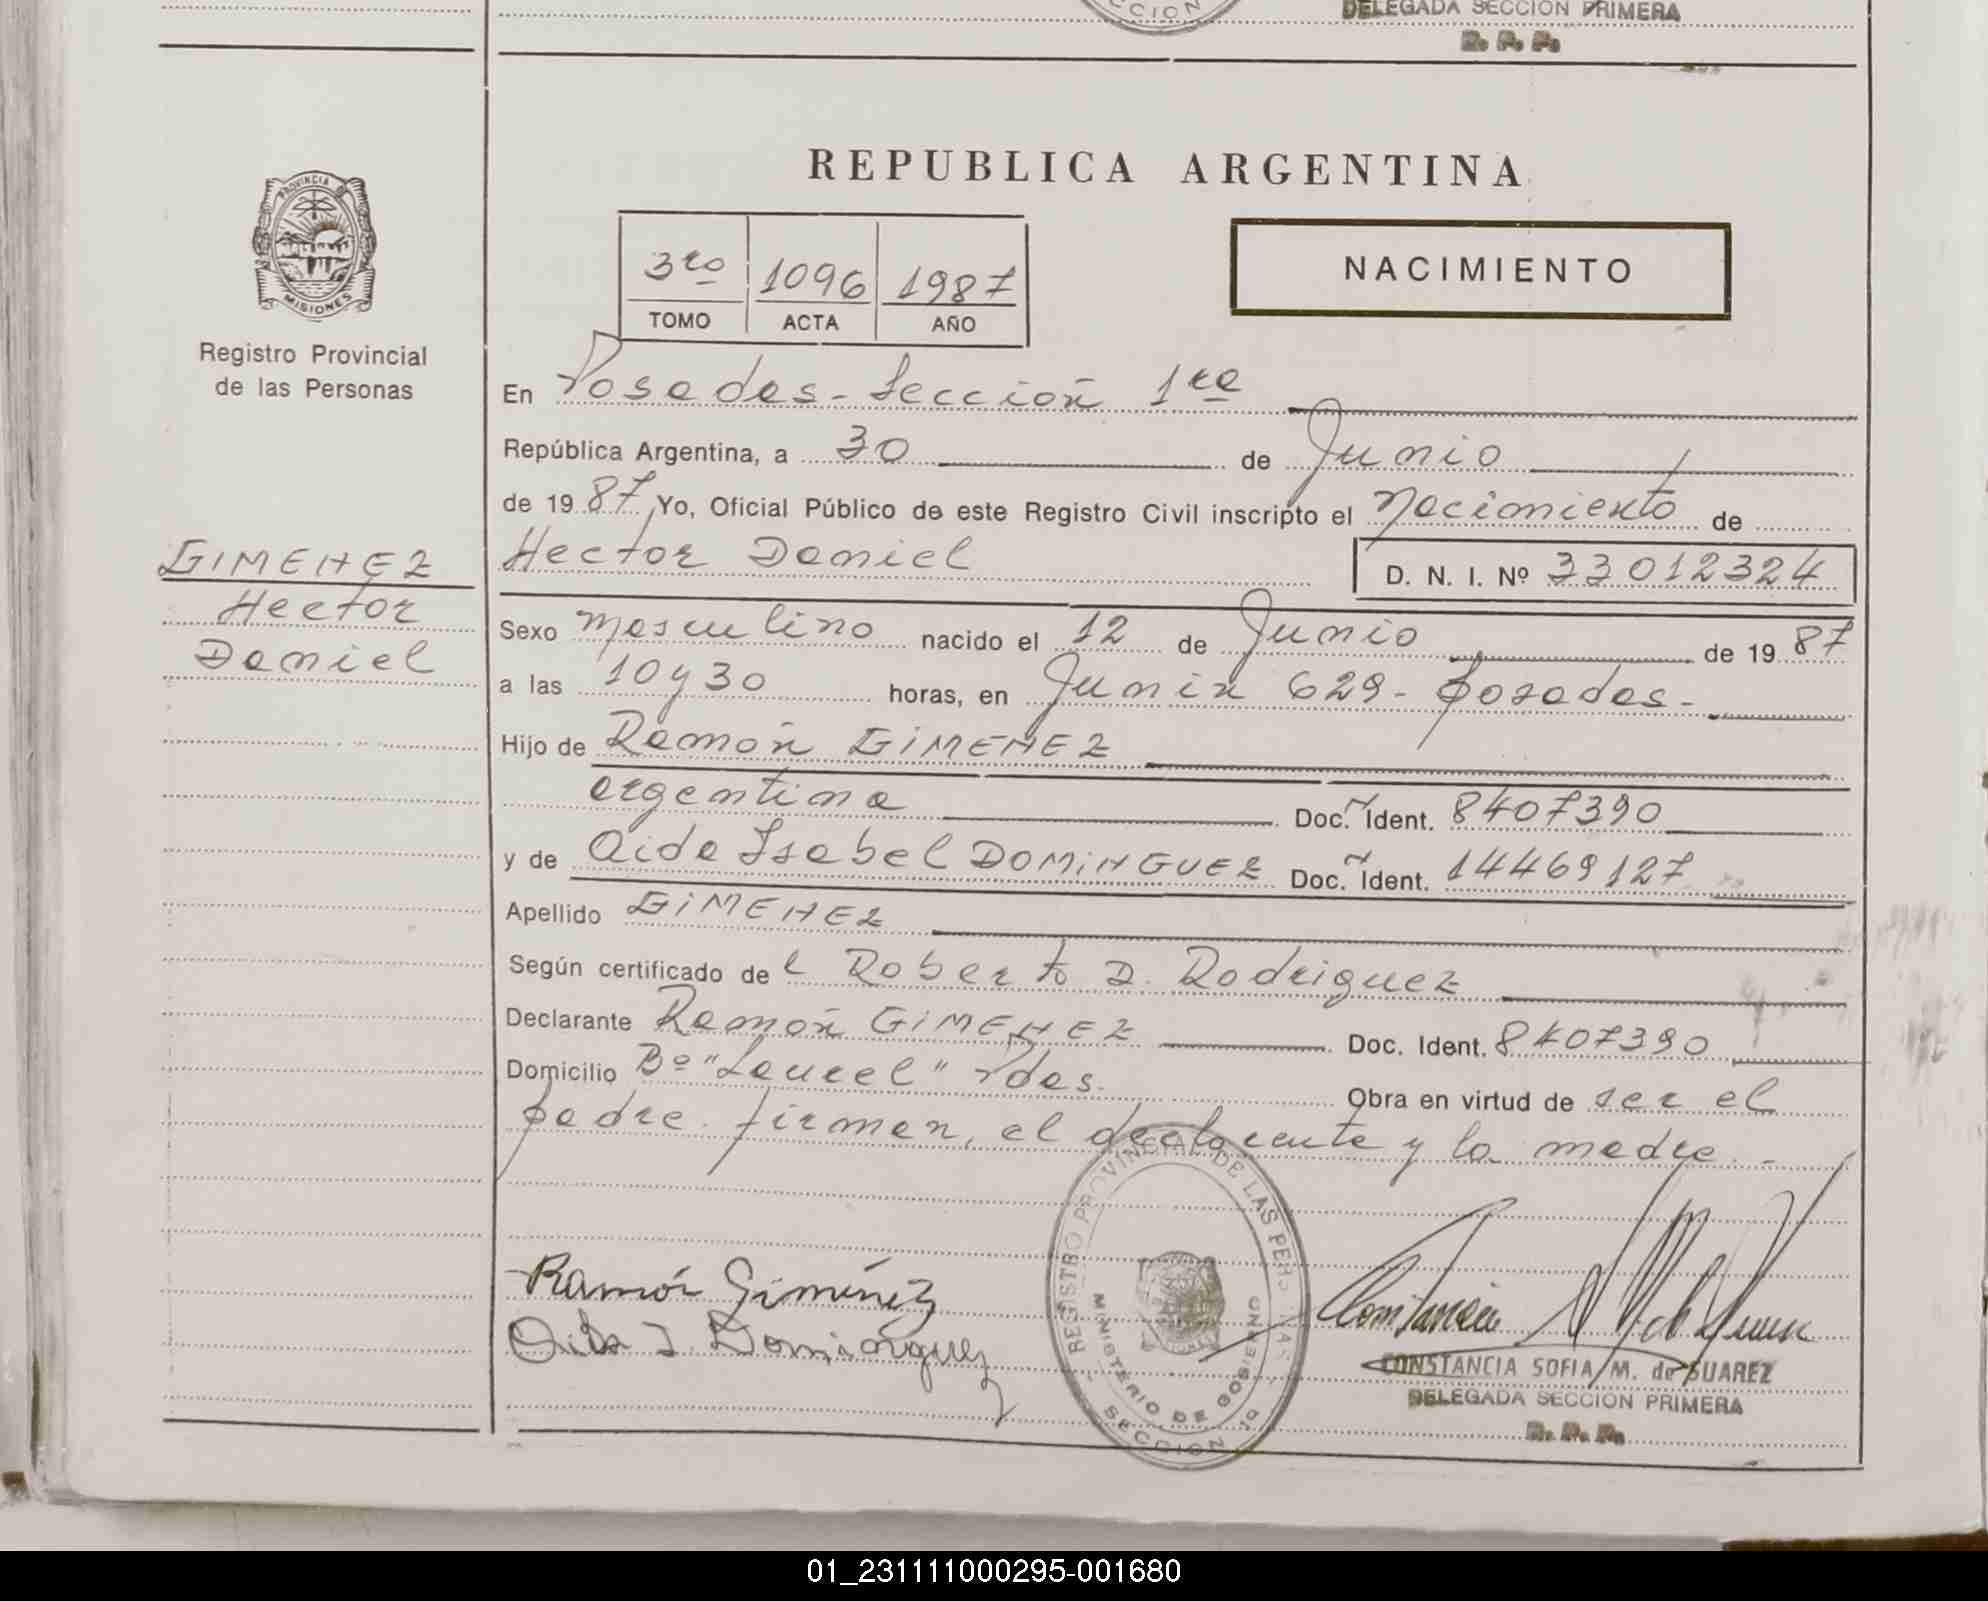 CCION
DELEGADA SECCION PRIMERA
R. P. P.
REPUBLICA ARGENTINA
PROVINCIA D
MISIONES
Registro Provincial
de las Personas
3ro 1096 1987
TOMO ACTA AÑO
NACIMIENTO
En Posadas - Sección 1ra
República Argentina, a 30 de Junio
de 1987 Yo, Oficial Público de este Registro Civil inscripto el Nacimiento de
GIMENEZ
Hector
Daniel
Hector Daniel D. N. I. Nº 33012324
Sexo Masculino nacido el 12 de Junio de 1987
a las 10 y 30 horas, en Junin 629 - Posadas -
Hijo de Ramón GIMENEZ
argentina Doc. Ident. 8407390
y de Aida Isabel DOMINGUEZ Doc. Ident. 14469127
Apellido GIMENEZ
Según certificado de l Roberto D. Rodriguez
Declarante Ramón GIMENEZ Doc. Ident. 8407390
Domicilio Bº "Laurel" Pdas. Obra en virtud de ser el
padre. firman, el declarante y la madre. -
Ramón Giménez
Aida I. Dominguez
REGISTRO PROVINCIAL DE LAS PERSONAS
MINISTERIO DE GOBIERNO
SECCION 1a
CONSTANCIA SOFIA M. de SUAREZ
DELEGADA SECCION PRIMERA
R. P. P.
01_231111000295-001680